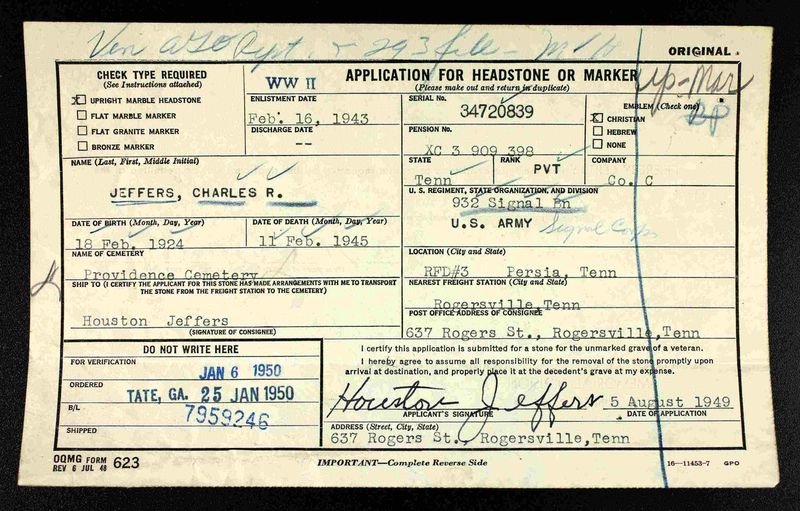 Ven AGO Rpt. & 293 file – 
ORIGINAL
CHECK TYPE REQUIRED
(See Instructions attached)
X UPRIGHT MARBLE HEADSTONE
FLAT MARBLE MARKER
FLAT GRANITE MARKER
BRONZE MARKER
WW II
ENLISTMENT DATE
Feb. 16, 1943
DISCHARGE DATE
--
APPLICATION FOR HEADSTONE OR MARKER
(Please make out and return in duplicate)
up-Mar
BP
SERIAL No.
34720839
PENSION No.
XC 3 909 398
EMBLEM (Check one)
X CHRISTIAN
HEBREW
NONE
NAME (Last, First, Middle Initial)
JEFFERS, CHARLES R.
STATE
Tenn
RANK
PVT
COMPANY
Co. C
U. S. REGIMENT, STATE ORGANIZATION, AND DIVISION
932 Signal Bn
U.S. ARMY Signal Corps
DATE OF BIRTH (Month, Day, Year)
18 Feb. 1924
DATE OF DEATH (Month, Day, Year)
11 Feb. 1945
NAME OF CEMETERY
Providence Cemetery
LOCATION (City and State)
RFD#3 Persia, Tenn
SHIP TO (I CERTIFY THE APPLICANT FOR THIS STONE HAS MADE ARRANGEMENTS WITH ME TO TRANSPORT
THE STONE FROM THE FREIGHT STATION TO THE CEMETERY)
Houston Jeffers
(SIGNATURE OF CONSIGNEE)
NEAREST FREIGHT STATION (City and State)
Rogersville,Tenn
POST OFFICE ADDRESS OF CONSIGNEE
637 Rogers St., Rogersville,Tenn
DO NOT WRITE HERE
FOR VERIFICATION
JAN 6 1950
ORDERED
TATE, GA. 25 JAN 1950
B/L
7959246
SHIPPED
I certify this application is submitted for a stone for the unmarked grave of a veteran.
I hereby agree to assume all responsibility for the removal of the stone promptly upon
arrival at destination, and properly place it at the decedent's grave at my expense.
Houston Jeffers 5 August 1949
APPLICANT'S SIGNATURE
DATE OF APPLICATION
ADDRESS (Street, City, State)
637 Rogers St., Rogersville,Tenn
OQMG FORM
REV 6 JUL 48
623
IMPORTANT—Complete Reverse Side
16—11453-7 GPO